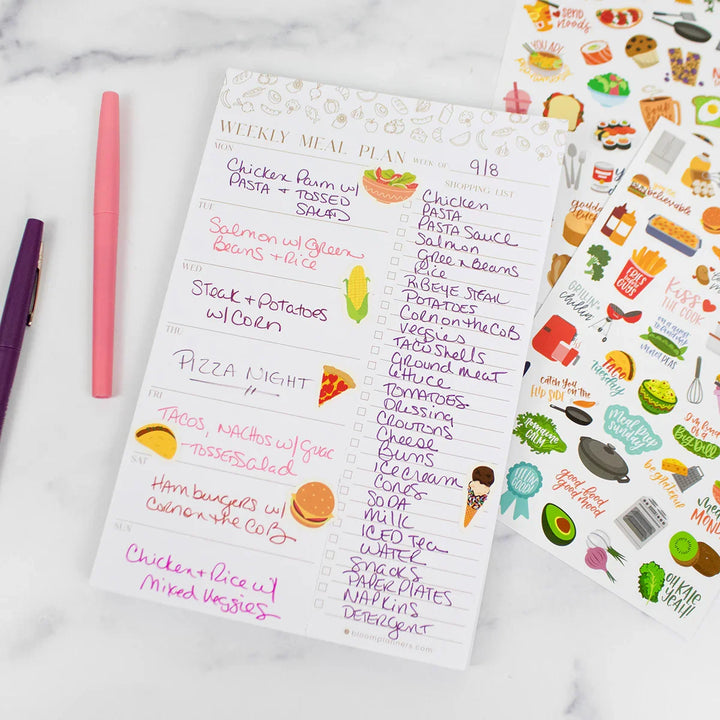 WEEKLY MEAL PLAN
WEEK OF: 9/8
MON
Chicken Parm w/
PASTA + TOSSED
SALAD
TUE
Salmon w/ Green
Beans + Rice
WED
Steak + Potatoes
w/ Corn
THU
PIZZA NIGHT
FRI
TACOS, NACHOS w/ GUAC
- TOSSED Salad
SAT
Hamburgers w/
Corn on the COB
SUN
Chicken + Rice w/
Mixed Veggies
SHOPPING LIST
Chicken
PASTA
PASTA Sauce
Salmon
Green Beans
Rice
RIBEYE STEAK
POTATOES
Corn on the COB
Veggies
TACO Shells
Ground meat
Lettuce
TOMATOES
Dressing
CROUTONS
Cheese
Buns
ICE CREAM
Cones
SODA
Milk
ICED Tea
WATER
Snacks
PAPER PLATES
NAPKINS
DETERGENT
bloomplanners.com
SEND
NOODS
YOU ARE
SOUP
FRIES
before
GUYS
GRILLIN'
&
chillin'
KISS
THE COOK
TACO
Tuesday
CATCH YOU
ON THE
FLIP SIDE
ROMAINE
CALM
Meal prep
Sunday
I'M KIND
OF A
BIG DILL
LOOKIN'
GOOD!
good food
good mood
MEATLESS
MONDAY
OH KALE
YEAH!